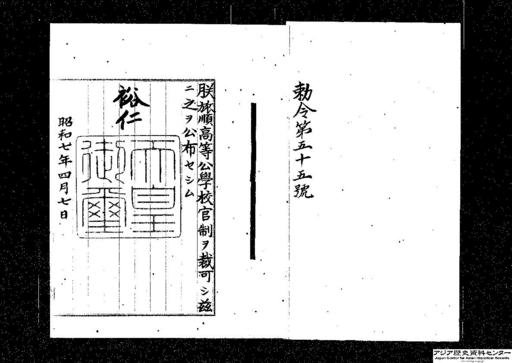 勅令第五十五號
朕旅順高等公學校官制ヲ裁可シ茲
ニ之ヲ公布セシム
裕仁
天皇
御璽
昭和七年四月七日
アジア歴史資料センター
Japan Center for Asian Historical Records